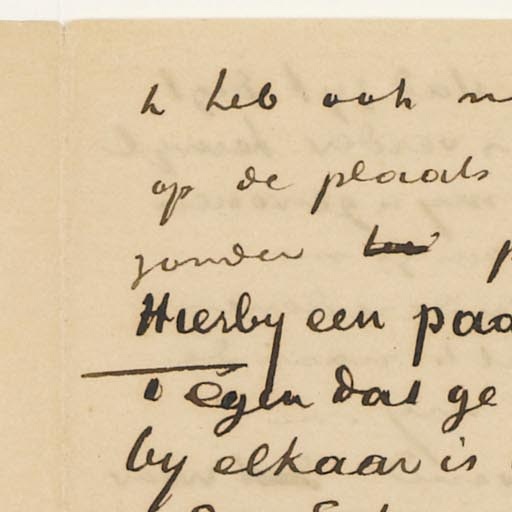 k heb ook
op de plaats
zonder
Hierby een paa
Tegen dat ge
by elkaar is